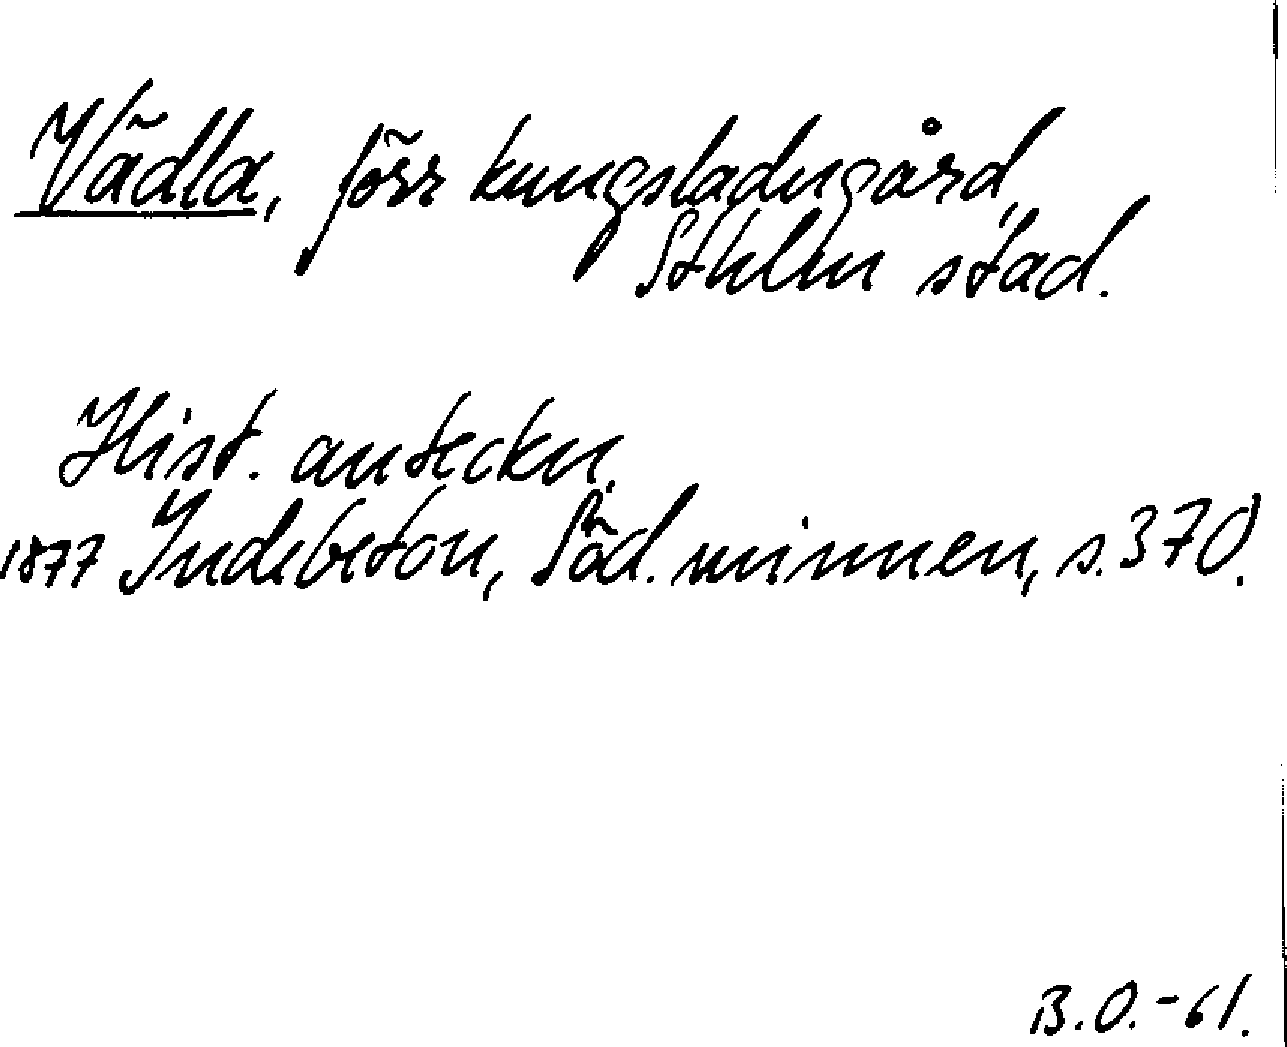 Vädla, förr kungsladugård,
Sthlm stad.
Hist. anteckn.
1877 Indebetou, Söd. minnen, s. 370.
B.O.-61.